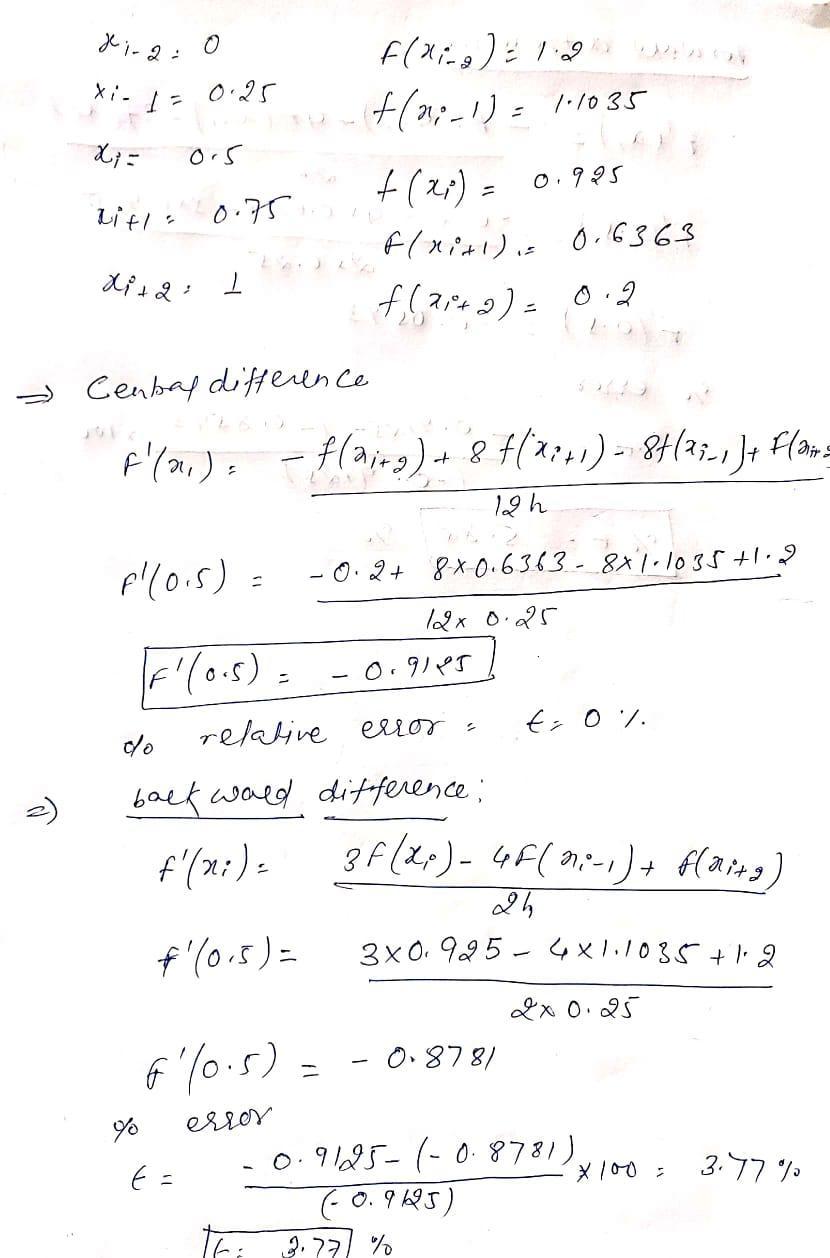 xi-2 = 0 f(xi-2) = 1.2
xi-1 = 0.25 f(xi-1) = 1.1035
xi = 0.5 f(xi) = 0.925
xi+1 = 0.75 f(xi+1) = 0.6363
xi+2 = 1 f(xi+2) = 0.2
⇒ Central difference
f'(xi) = - f(xi+2) + 8 f(xi+1) - 8f(xi-1) + f(xi+2
12h
f'(0.5) = -0.2 + 8×0.6363 - 8×1.1035 +1.2
12× 0.25
f'(0.5) = - 0.9125
% relative error = ϵ = 0 %.
⇒) backward difference:
f'(xi) = 3f(xi) - 4f(xi-1) + f(xi+2)
2h
f'(0.5) = 3×0.925 - 4×1.1035 + 1.2
2× 0.25
f'(0.5) = - 0.8781
% error
ϵ = - 0.9125 - (- 0.8781) × 100 = 3.77 %
(- 0.9125)
ϵ = 3.77 %